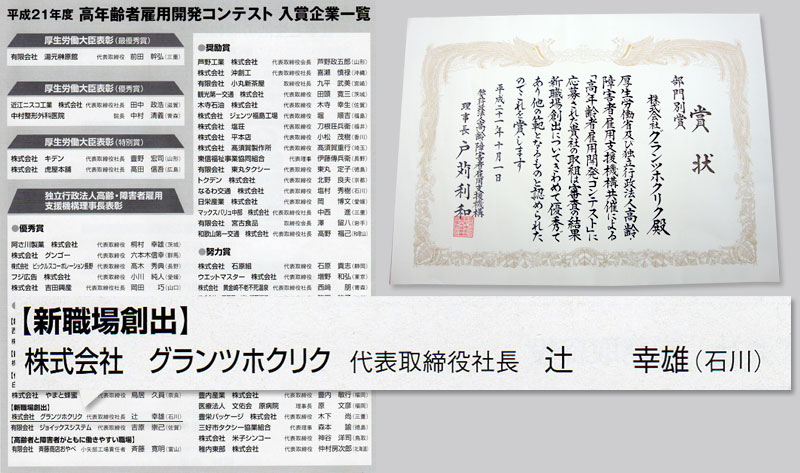 平成21年度 高年齢者雇用開発コンテスト 入賞企業一覧
厚生労働大臣表彰（最優秀賞）
有限会社 湯元榊原館 代表取締役 前田 幹弘（三重）
厚生労働大臣表彰（優秀賞）
近江ニスコ工業 株式会社 代表取締役 田中 政浩（滋賀）
中村整形外科医院 院長 中村 清義（青森）
厚生労働大臣表彰（特別賞）
株式会社 キデン 代表取締役 菅野 宏司（山形）
株式会社 虎屋本舗 代表取締役 高田 信吾（広島）
独立行政法人高齢・障害者雇用
支援機構理事長表彰
●優秀賞
阿さ川製菓 株式会社 代表取締役 桐村 幸雄（茨城）
株式会社 グンゴー 代表取締役 六本木信幸（群馬）
株式会社 ビックルスコーポレーション長野 代表取締役 高木 秀典（長野）
フジ広告 株式会社 代表取締役 小川 純人（愛媛）
株式会社 吉田興産 代表取締役 岡田 巧（山口）
株式会社 やまと蜂蜜 代表取締役 鳥居 久員（奈良）
【新職場創出】
株式会社 グランツホクリク 代表取締役社長 辻 幸雄（石川）
有限会社 ジョイックスシステム 代表取締役 吉原 崇己（佐賀）
【高齢者と障害者がともに働きやすい職場】
有限会社 斉藤商店おやべ 小矢部工場責任者 斉藤 寛明（富山）
●奨励賞
芦野工業 株式会社 代表取締役会長 芦野政五郎（山形）
株式会社 沖創工 代表取締役社長 喜瀬 慎禄（沖縄）
有限会社 小丸新茶屋 取締役社長 九平 武美（宮崎）
観光第一交通 株式会社 代表取締役 田頭 寛三（茨城）
木寺石油 株式会社 代表取締役 木寺 幸生（佐賀）
株式会社 ジェンツ福島工場 代表取締役 堀 順吉（福島）
株式会社 塩荘 代表取締役 刀根荘兵衛（福井）
株式会社 平本店 代表取締役 小松 茂樹（香川）
株式会社 高須賀製作所 代表取締役 高須賀重行（埼玉）
東信福祉事業協同組合 理事長 伊藤傳兵衛（長野）
有限会社 東丸タクシー 代表取締役 東丸 定子（徳島）
トクデン 株式会社 代表取締役 北野 良夫（京都）
なるわ交通 株式会社 代表取締役 塩村 秀樹（石川）
日栄産業 株式会社 代表取締役 岡 博文（愛知）
マックスバリュ中部 株式会社 代表取締役社長 中西 進（三重）
有限会社 宮古食品 代表取締役 澤 留八（岩手）
和歌山第一交通 株式会社 代表取締役社長 高野 福己（和歌山）
●努力賞
株式会社 石原組 代表取締役 石原 貴志（静岡）
ウエットマスター 株式会社 代表取締役 増野 和弘（東京）
株式会社 黄金崎不老不死温泉 代表取締役 西﨑 朋（青森）
豊内産業 株式会社 代表取締役 豊内 敏行（福岡）
医療法人 文佑会 原病院 理事長 原 文彦（福岡）
豊栄パッケージ 株式会社 代表取締役 木下 尚（三重）
三好市タクシー協業組合 理事長 森本 諭（徳島）
株式会社 米子シンコー 代表取締役 神谷 洋司（鳥取）
稚内東部 株式会社 代表取締役 仲村房次郎（北海道）
賞状
部門別賞
株式会社グランツホクリク殿
厚生労働省及び独立行政法人高齢・
障害者雇用支援機構共催による
「高年齢者雇用開発コンテスト」に
応募された貴社の取組は審査の結果
新職場創出についてきわめて優秀で
あり他の範となるものと認められた
のでこれを賞します
平成二十一年十月一日
独立行政法人高齢・障害者雇用支援機構
理事長 戸苅利和
【新職場創出】
株式会社 グランツホクリク 代表取締役社長 辻 幸雄（石川）